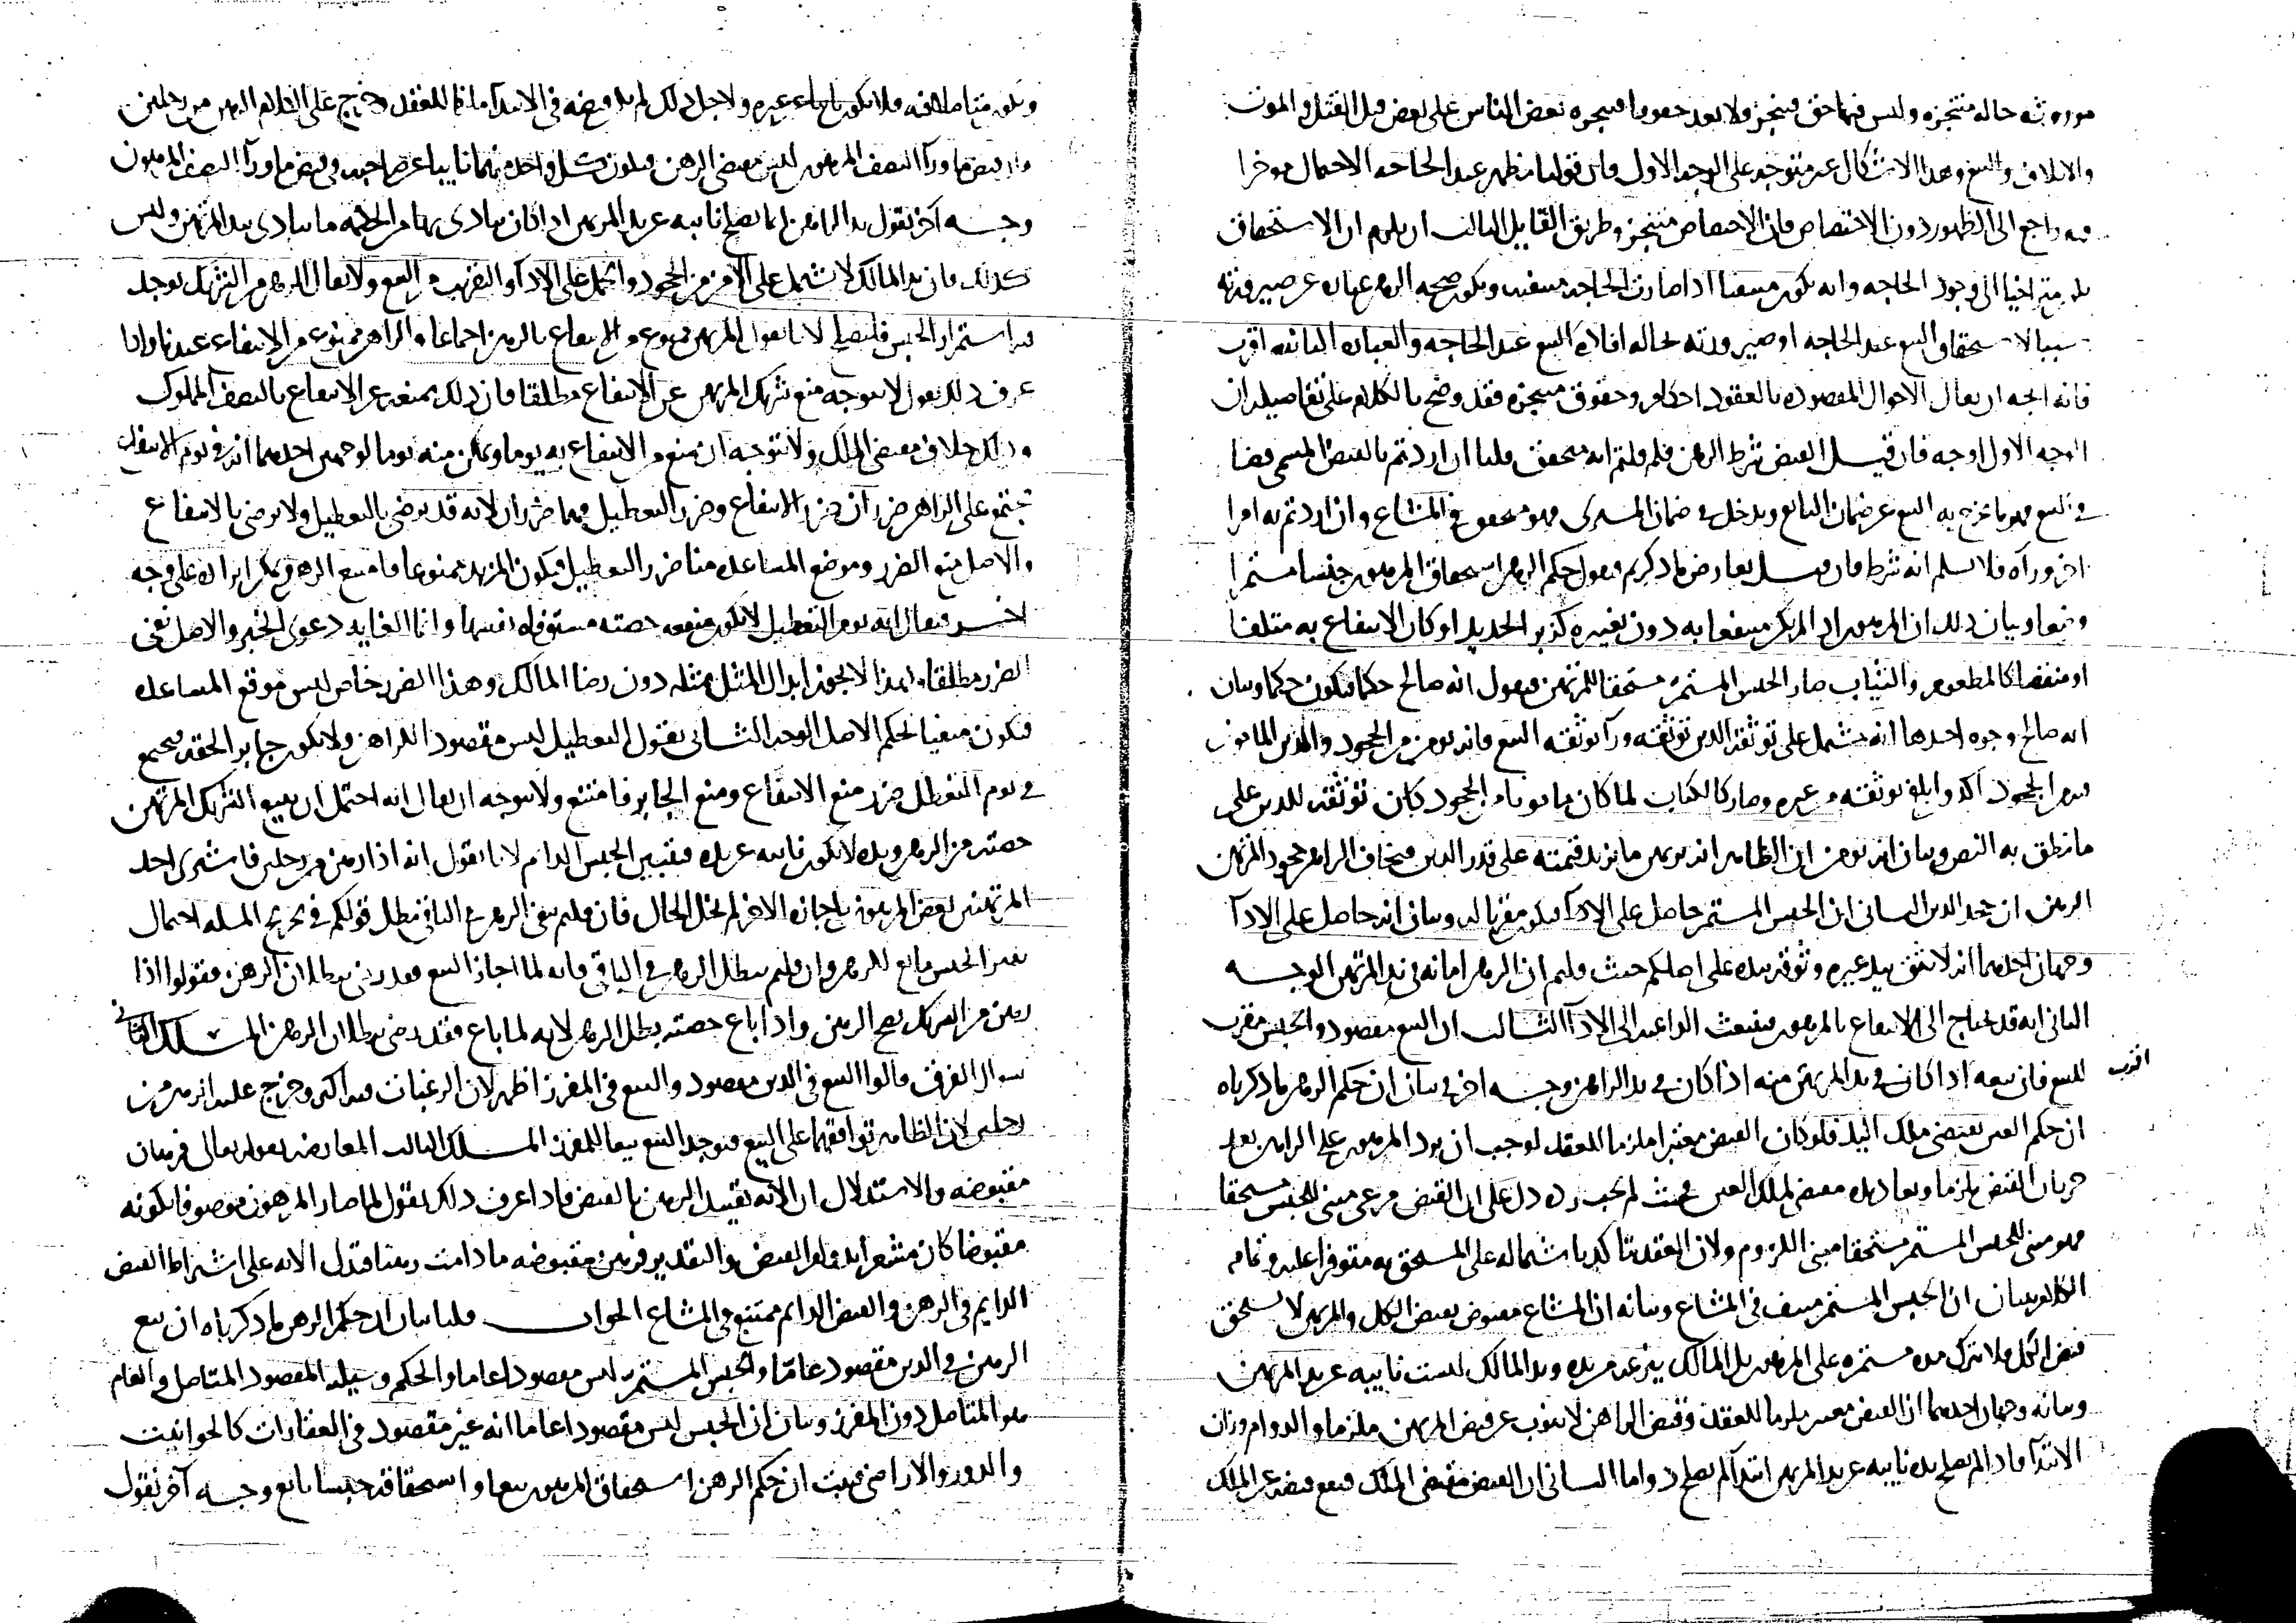 موروثه حاله منتجزه وليس فيها حق متنجز ولا يعد حقوقا متنجزه بعض الناس على بعض قبل القتل والموت
والاتلاف والبيع وهذا الاشكال غير متوجه على الوجه الاول فان قولنا يظهر عند الحاجه الاحتمال موخرا
فيه راجع الى الظهور دون الاختصاص فان الاختصاص متنجز وطريق القايل الثالث ان يلزم ان الاستحقاق
الى وجود الحاجه وانه يكون اذا صارت الحاجه ويكون صحه الرهن عباره عن صيرورته
سببا لاستحقاق البيع عند الحاجه او صيرورته بحاله افاده البيع عند الحاجه والعباره الثانيه اقرب
فانه اتجه ان يقال الاحوال المقصوده بالعقود احكام وحقوق متنجزه فقد وضح بالكلام على تفاصيله ان
الوجه الاول اوجه فان قيل القبض شرط الرهن فلم قلتم انه متحقق قلنا ان اردتم بالقبض المسمى قبضا
في البيع فهو ما يخرج به البيع عن ضمان البايع ويدخل في ضمان المشترى فهو متحقق في المشاع وان اردتم به امرا
اخر وراه فلا نسلم انه شرط فان قيل يعارض ما ذكرتم فيقول حكم الرهن استحقاق المرهون حبسا مستمرا
وبيان ذلك ان المرهون ان لم يكن منتفعا به دون تغييره كزبر الحديد او كان الانتفاع به متلفا
او منقصا كالمطعوم والثياب صار الحبس المستمر مستحقا للمرتهن فيقول انه صالح حكما فيكون حكما وبيان
انه صالح وجوه احدها انه يشتمل على توثقه الدين توثقه ورآ توثقه البيع فانه يومن من الجحود والدين المامون
فيه الجحود آكد وابلغ توثقه من غيره وصار كالكتاب لما كان مامونا من الجحود كان توثقه للدين على
ما نطق به النص وبيان انه يومن ان الظاهر انه يرهن ما يزيد قيمته على قدر الدين فيخاف الراهن جحود المرتهن
الرهن ان جحد الدين الثاني ان الحبس المستمر حامل على الادآ فيكون مقربا له وبيان انه حامل على الادآ
وجهان احدهما انه لا يثق بيد غيره وثوقه بيده على اصلكم حيث قلتم ان الرهن امانه في يد المرتهن الوجه
الثاني انه قد يحتاج الى الانتفاع بالمرهون فتبعث الداعيه الى الادآ الثالث ان البيع مقصود والحبس مقرب
للبيع فان بيعه اذا كان في يد المرتهن اقرب منه اذا كان في يد الراهن وجه اخر في بيان ان حكم الرهن ما ذكرناه
ان حكم العين يقتضى ملك اليد فلو كان القبض معتبرا ملزما للعقد لوجب ان يرد المرهون على الراهن بعد
جريان القبض ملزما مقتضى لملك العين فحيث لم يجب رده دل على ان القبض مرعى مبنى للحبس مستحقا
فهو مبنى للحبس المستمر مستحقا مبنى اللزوم ولان العقد تاكد باشتماله على المستحق به متوفرا عليه وتمام
الكلام ببيان ان الحبس المستمر منتف في المشاع وبيانه ان المشاع مقبوض بقبض الكل والمرتهن لا يستحق
قبض الكل فلا تترك يده مستمره على المرهون بل المالك ينزعه من يده ويد المالك ليست نايبه عن يد المرتهن
وبيانه وجهان احدهما ان القبض معتبر ملزما للعقد وقبض الراهن لا ينوب عن قبض المرتهن ملزما والدوام وزان
الابتدآ فاذا لم يصلح يده نايبه عن يد المرتهن ابتدآ لم يصلح دواما الثاني ان القبض مقتضى الملك فيقع قبضه عن الملك
ويكون مقتضاه فلا يكون نايبا عن غيره ولاجل ذلك لم يك قبضه في الابتدآ ملزما للعقد وخرج على الكلام الرهن من رجلين
فان قبض ما ورآ النصف المرهون ليس مقتضى الرهن فيكون كل واحد منهما نايبا عن صاحبه في قبض ما ورآ النصف المرهون
وجه آخر نقول يد الراهن انما يصلح نايبه عن يد المرتهن اذا كان يتادى بها من الحكمه ما يتادى بيد المرتهن وليس
كذلك فان يد المالك لا تشتمل على الامن من الجحود والحمل على الادآ والتقريب من البيع ولا يقال الرهن من الشريك يوجد
فيه استمرار الحبس فليصلح لانا نقول المرتهن ممنوع من الانتفاع بالرهن اجماعا والراهن ممنوع من الانتفاع عندنا واذا
عرف ذلك نقول لا يتوجه منع شريك المرتهن عن الانتفاع مطلقا فان ذلك يمنعه عن الانتفاع بالنصف المملوك
وذلك خلاف مقتضى الملك ولا يتوجه ان يمنع من الانتفاع به يوما ويمكن منه يوما لوجهين احدهما انه في يوم الانتفاع
يجتمع على الراهن ضرران ضرر الانتفاع وضرر التعطيل فهما ضرران لانه قد يرضى بالتعطيل ولا يرضى بالانتفاع
والاصل منع الضرر وموضع المساعده منا ضرر التعطيل فيكون المرتهن ممنوعا فامتنع الرهن ويمكن ايراده على وجه
اخر فيقال انه يوم التعطيل لا يكون منفعه حصته مستوفاه بنفسها وانما الغايه دعوى الجبر والاصل نفى
الضرر مطلقا ولهذا لا يجوز ابدال المثل بمثله دون رضا المالك وهذا الضرر خاص ليس موقع المساعده
فيكون منفيا لحكم الاصل الوجه الثاني نقول التعطيل ليس مقصود الراهن ولا يكون جابرا لحقه فيجتمع
في يوم التعطل ضرر منع الانتفاع ومنع الجابر فامتنع ولا يتوجه ان يقال انه احتمل ان يبيع الشريك المرتهن
حصته من الرهن ويده لا تكون نايبه عن يده فيتغير الحبس الدايم لانا نقول انه اذا رهن من رجلين فاشترى احد
المرتهنين بعض المرهون باجازه الاخر لم يختل الحال فان قلتم يبقى الرهن في الباقي بطل قولكم في تخريج المسله احتمال
تغير الحبس مانع للرهن وان قلتم يبطل الرهن في الباقي فانه لما اجاز البيع فقد رضى ببطلان الرهن فقولوا اذا
رهن من الشريك يصح الرهن واذا باع حصته بطل الرهن لانه لما باع فقد رضى ببطلان الرهن المسلك الثاني
سوال الفرق قالوا البيع في الدين مقصود والبيع في المفرز اظهر لان الرغبات فيه اكثر وخرج عليه الرهن من
رجلين لان الظاهر توافقهما على البيع فيوجد البيع بيعا للمفرز المسلك الثالث المعارضه بقوله تعالى فرهان
مقبوضه والاستدلال ان الآيه تقييد الرهن بالقبض فاذا عرف ذلك نقول لما صار المرهون موصوفا بكونه
مقبوضا كان مشعرا بدوام القبض والتقدير فرهن مقبوضه ما دامت رهنا فتدل الآيه على اشتراط القبض
الدايم في الرهن والقبض الدايم ممتنع في المشاع الجواب قلنا بيان ان حكم الرهن ما ذكرناه ان بيع
الرهن في الدين مقصود عاما والحبس المستمر ليس مقصودا عاما والحكم وسيله المقصود المتاصل والعام
هو المتاصل دون المفرز وبيان ان الحبس ليس مقصودا عاما انه غير مقصود في العقارات كالحوانيت
والدور والاراضى فثبت ان حكم الرهن استحقاق المرهون بيعا واستحقاقه حبسا تابع وجه آخر نقول